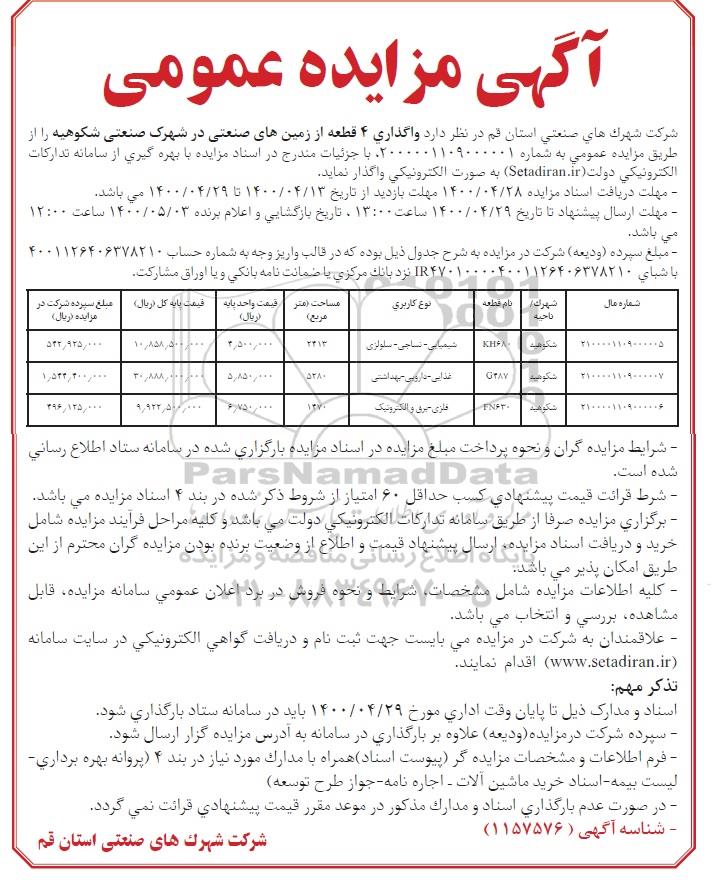 آگهی مزایده عمومی
شرکت شهرك هاي صنعتي استان قم در نظر دارد واگذاري ۴ قطعه از زمین های صنعتی در شهرک صنعتی شکوهیه را از
طريق مزايده عمومي به شماره ۲۰۰۰۰۰۱۱۰۹۰۰۰۰۰۱، با جزئيات مندرج در اسناد مزايده با بهره گيري از سامانه تدارکات
الکترونيکي دولت(Setadiran.ir) به صورت الکترونيکي واگذار نمايد.
- مهلت دريافت اسناد مزايده ۱۴۰۰/۰۴/۲۸ مهلت بازديد از تاريخ ۱۴۰۰/۰۴/۱۳ تا ۱۴۰۰/۰۴/۲۹ مي باشد.
- مهلت ارسال پيشنهاد تا تاريخ ۱۴۰۰/۰۴/۲۹ ساعت۱۳:۰۰ ، تاريخ بازگشايي و اعلام برنده ۱۴۰۰/۰۵/۰۳ ساعت ۱۲:۰۰
مي باشد.
- مبلغ سپرده (وديعه) شرکت در مزايده به شرح جدول ذيل بوده که در قالب واريز وجه به شماره حساب ۴۰۰۱۱۲۶۴۰۶۳۷۸۲۱۰
با شباي IR۴۷۰۱۰۰۰۰۴۰۰۱۱۲۶۴۰۶۳۷۸۲۱۰ نزد بانك مركزي يا ضمانت نامه بانكي و يا اوراق مشاركت.
شماره مال | شهرك/ ناحیه | نام قطعه | نوع کاربري | مساحت (متر مربع) | قیمت واحد پایه (ریال) | قیمت پایه کل (ریال) | مبلغ سپرده شرکت در مزایده (ریال)
۲۱۰۰۰۰۱۱۰۹۰۰۰۰۰۵ | شکوهیه | KH۶۸۰ | شیمیایی- نساجی- سلولزی | ۲۴۱۳ | ۴,۵۰۰,۰۰۰ | ۱۰,۸۵۸,۵۰۰,۰۰۰ | ۵۴۲,۹۲۵,۰۰۰
۲۱۰۰۰۰۱۱۰۹۰۰۰۰۰۷ | شکوهیه | G۴۸۷ | غذایی-دارویی-بهداشتی | ۵۲۸۰ | ۵,۸۵۰,۰۰۰ | ۳۰,۸۸۸,۰۰۰,۰۰۰ | ۱,۵۴۴,۴۰۰,۰۰۰
۲۱۰۰۰۰۱۱۰۹۰۰۰۰۰۶ | شکوهیه | FN۶۳۰ | فلزی-برق و الکترونیک | ۱۴۷۰ | ۶,۷۵۰,۰۰۰ | ۹,۹۲۲,۵۰۰,۰۰۰ | ۴۹۶,۱۲۵,۰۰۰
- شرايط مزايده گران و نحوه پرداخت مبلغ مزايده در اسناد مزايده بارگزاري شده در سامانه ستاد اطلاع رساني
شده است.
ParsNamadData
- شرط قرائت قيمت پيشنهادي کسب حداقل ۶۰ امتياز از شروط ذکر شده در بند ۴ اسناد مزايده مي باشد.
- برگزاري مزايده صرفا از طريق سامانه تدارکات الکترونيکي دولت مي باشد و کليه مراحل فرآيند مزايده شامل
خريد و دريافت اسناد مزايده، ارسال پيشنهاد قيمت و اطلاع از وضعيت برنده بودن مزايده گران محترم از اين
پایگاه اطلاع رسانی مناقصه و مزایده
طريق امکان پذير مي باشد.
۰۲۱-۸۸۳۴۹۶۷۰-۵
- کليه اطلاعات مزايده شامل مشخصات، شرايط و نحوه فروش در برد اعلان عمومي سامانه مزايده، قابل
مشاهده، بررسي و انتخاب مي باشد.
- علاقمندان به شرکت در مزايده مي بايست جهت ثبت نام و دريافت گواهي الکترونيکي در سايت سامانه
(www.setadiran.ir) اقدام نمايند.
تذکر مهم:
اسناد و مدارک ذيل تا پايان وقت اداري مورخ ۱۴۰۰/۰۴/۲۹ بايد در سامانه ستاد بارگذاري شود.
- سپرده شرکت درمزايده(وديعه) علاوه بر بارگذاري در سامانه به آدرس مزايده گزار ارسال شود.
- فرم اطلاعات و مشخصات مزايده گر (پيوست اسناد)همراه با مدارك مورد نياز در بند ۴ (پروانه بهره برداري-
ليست بيمه-اسناد خريد ماشين آلات ـ اجاره نامه-جواز طرح توسعه)
- در صورت عدم بارگذاري اسناد و مدارك مذکور در موعد مقرر قيمت پيشنهادي قرائت نمي گردد.
- شناسه آگهی (۱۱۵۷۵۷۶)
شرکت شهرك های صنعتی استان قم